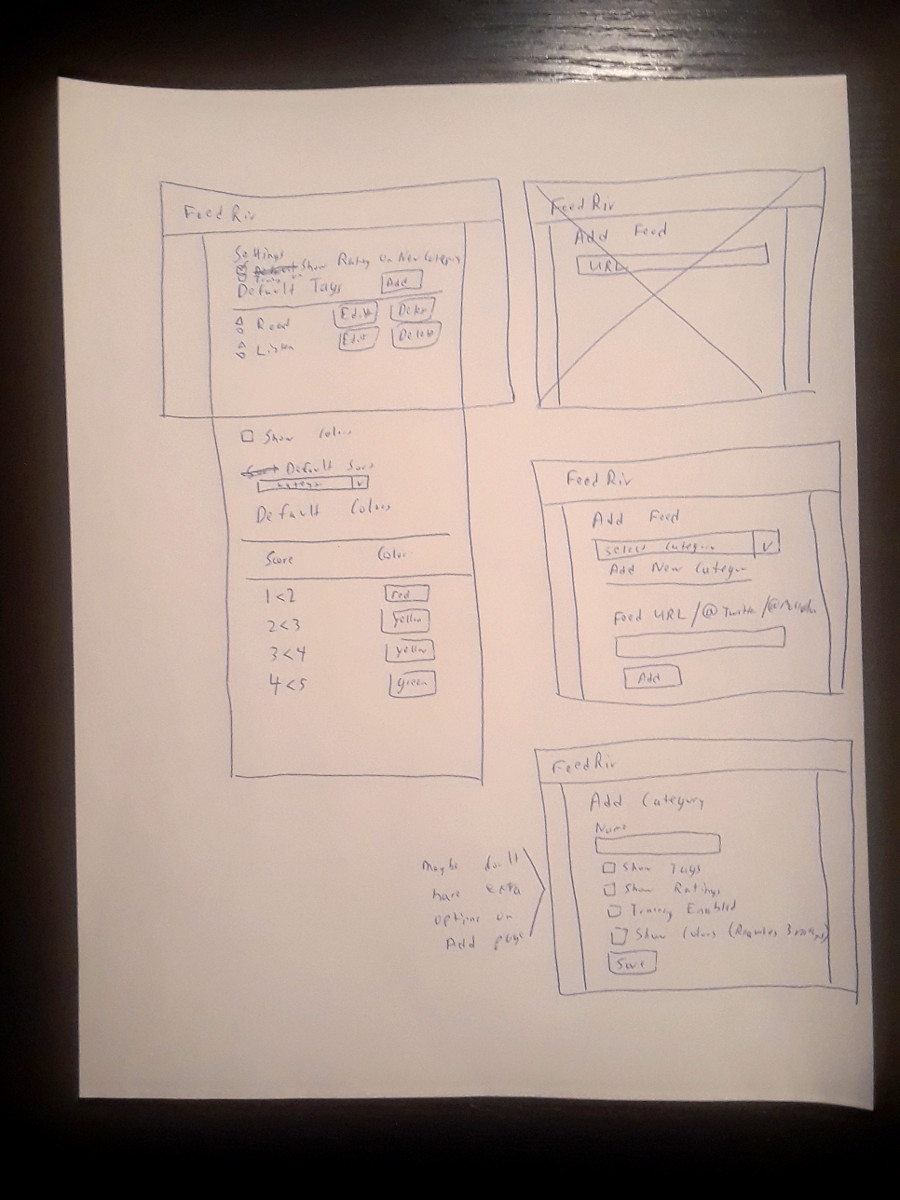 FeedRiv
Settings
Show Rating on New Category
Default Tags Add
Read Edit
Listen Edit Delete
Show Colors
Default Sort
Default Colors
Score Color
1<2 red
2<3 yellow
3<4 yellow
4<5 green
FeedRiv
Add Feed
URL
FeedRiv
Add Feed
Select Category v
Add New Category
Feed URL/@Twitter/@
Add
FeedRiv
Add Category
Name
Show Tags
Show Ratings
Training Enabled
Show Colors (Requires
Save
Maybe don't
have extra
options on
Add page